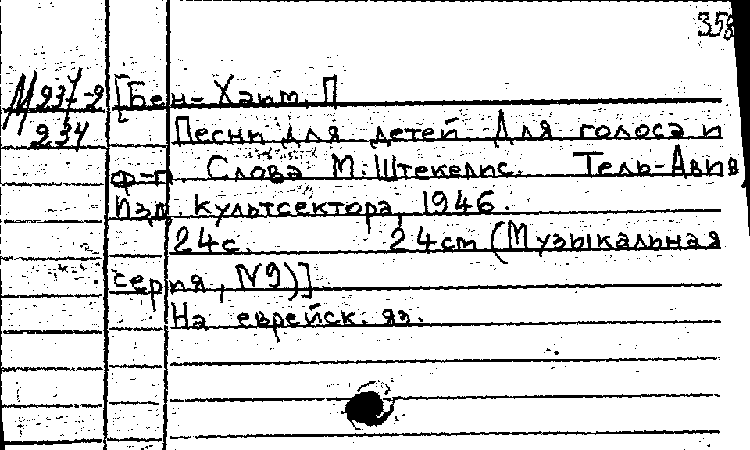 358
М 237-2 [Бен-Хаим, П
234 Песни для детей Для голоса и
ф-п. Слова М. Штекелис. Тель-Авив,
Изд. культсектора, 1946.
24с. 24cm (Музыкальная
серия, №9)]
На еврейск. яз.